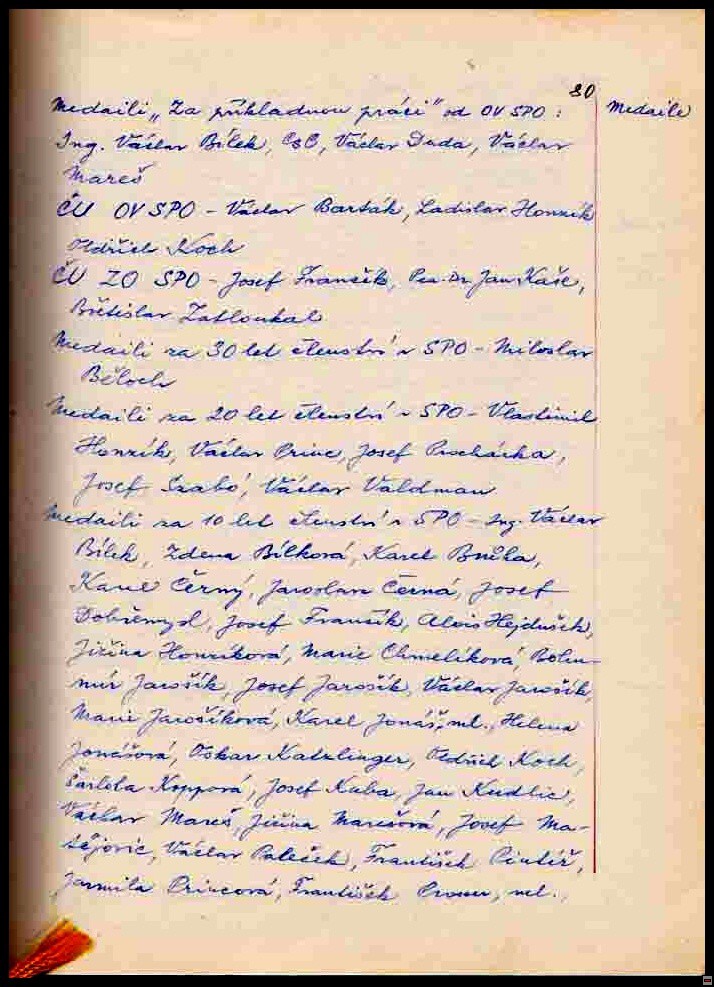 80
Medaili „Za příkladnou práci" od OV SPO: Medaile
Ing. Václav Bílek, CSC, Václav Duda, Václav
Mareš
ČU OV SPO - Václav Barták, Ladislav Honzík
Oldřich Koch
ČU ZO SPO - Josef Frančík, Jan Kaše,
Břetislav Zatloukal
Medaili za 30 let členství v SPO - Miloslav
Běloch
Medaili za 20 let členství v SPO - Vlastimil
Honzík, Václav Princ, Josef Procházka,
Josef Szabó, Václav Valdman
Medaili za 10 let členství v SPO - Ing. Václav
Bílek, Zdena Bílková, Karel
Karel Černý, Jaroslava Černá, Josef
Dobřemysl, Josef Frančík, Alois Hejdušek,
Jiřina Honzíková, Marie Chmelíková, Bohu-
mír Jarošík, Josef Jarošík, Václav Jarošík,
Marie Jarošíková, Karel Jonáš, ml., Helena
Jonášová, Oskar Katzlinger, Oldřich Koch,
Šarlota Koppová, Josef Kuba, Jan Kudlic,
Václav Mareš, Jiřina Marešová, Josef Ma-
tějovic, Václav Paleček, František Pintíř,
Jarmila Princová, František ml.,